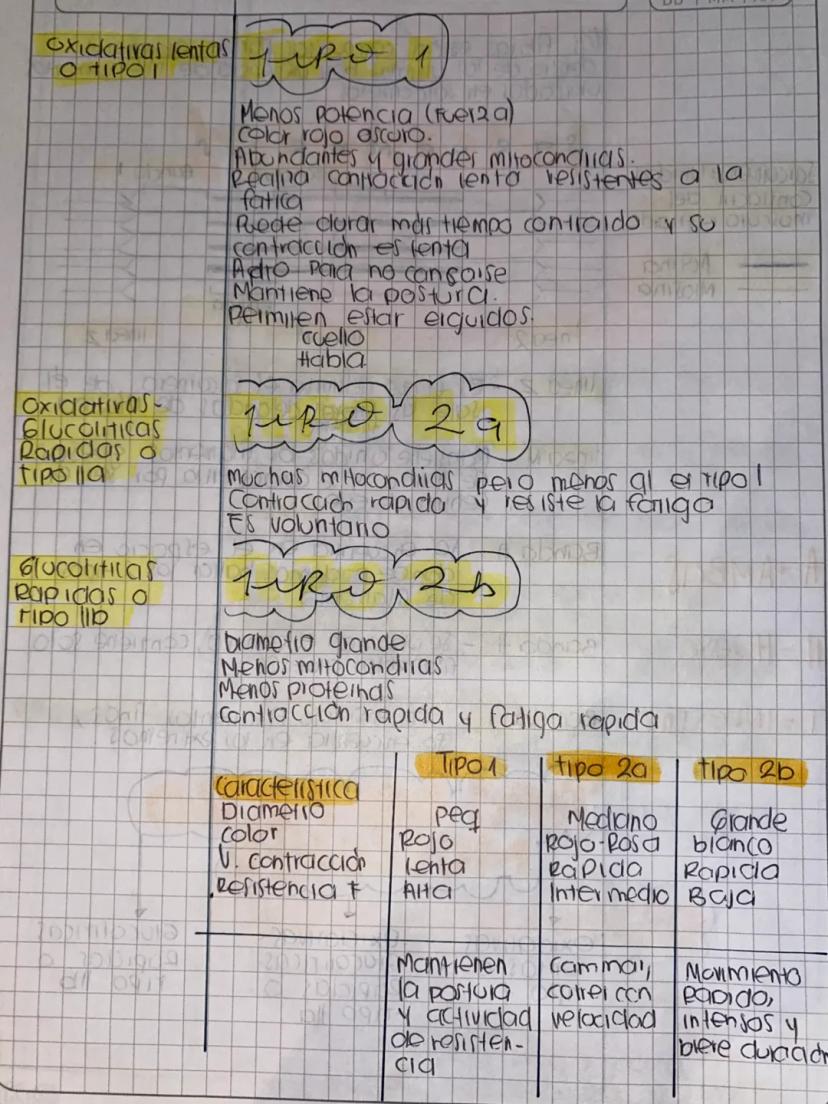 Oxidativas lentas
o tipo I
Tipo 1
Menos potencia (Fuerza)
Color rojo oscuro.
Abundantes y grandes mitocondrias.
Realiza contracción lenta resistentes a la
fatica
Puede durar más tiempo contraido y su
contracción es lenta
Apto para no cansarse
Mantiene la postura.
Permiten estar erguidos.
Cuello
Habla
Oxidativas-
Glucoliticas
Rapidas o
tipo IIa
Tipo 2a
muchas mitocondrias pero menos al el tipo I
Contraccion rapida y resiste la fatiga
Es voluntario
Glucoliticas
Rapidas o
tipo IIb
Tipo 2b
Diametro grande
Menos mitocondrias
Menos proteinas
Contracción rapida y fatiga rapida
Caracteristica Tipo 1 tipo 2a tipo 2b
Diametro peq Mediano Grande
Color Rojo Rojo-Rosa blanco
V. contracción lenta Rapida Rapida
Resistencia F Alta Intermedio Baja
Mantienen caminar, Movimiento
la postura correr con rapido,
y actividad velocidad intensos y
de resisten- breve duración
cia